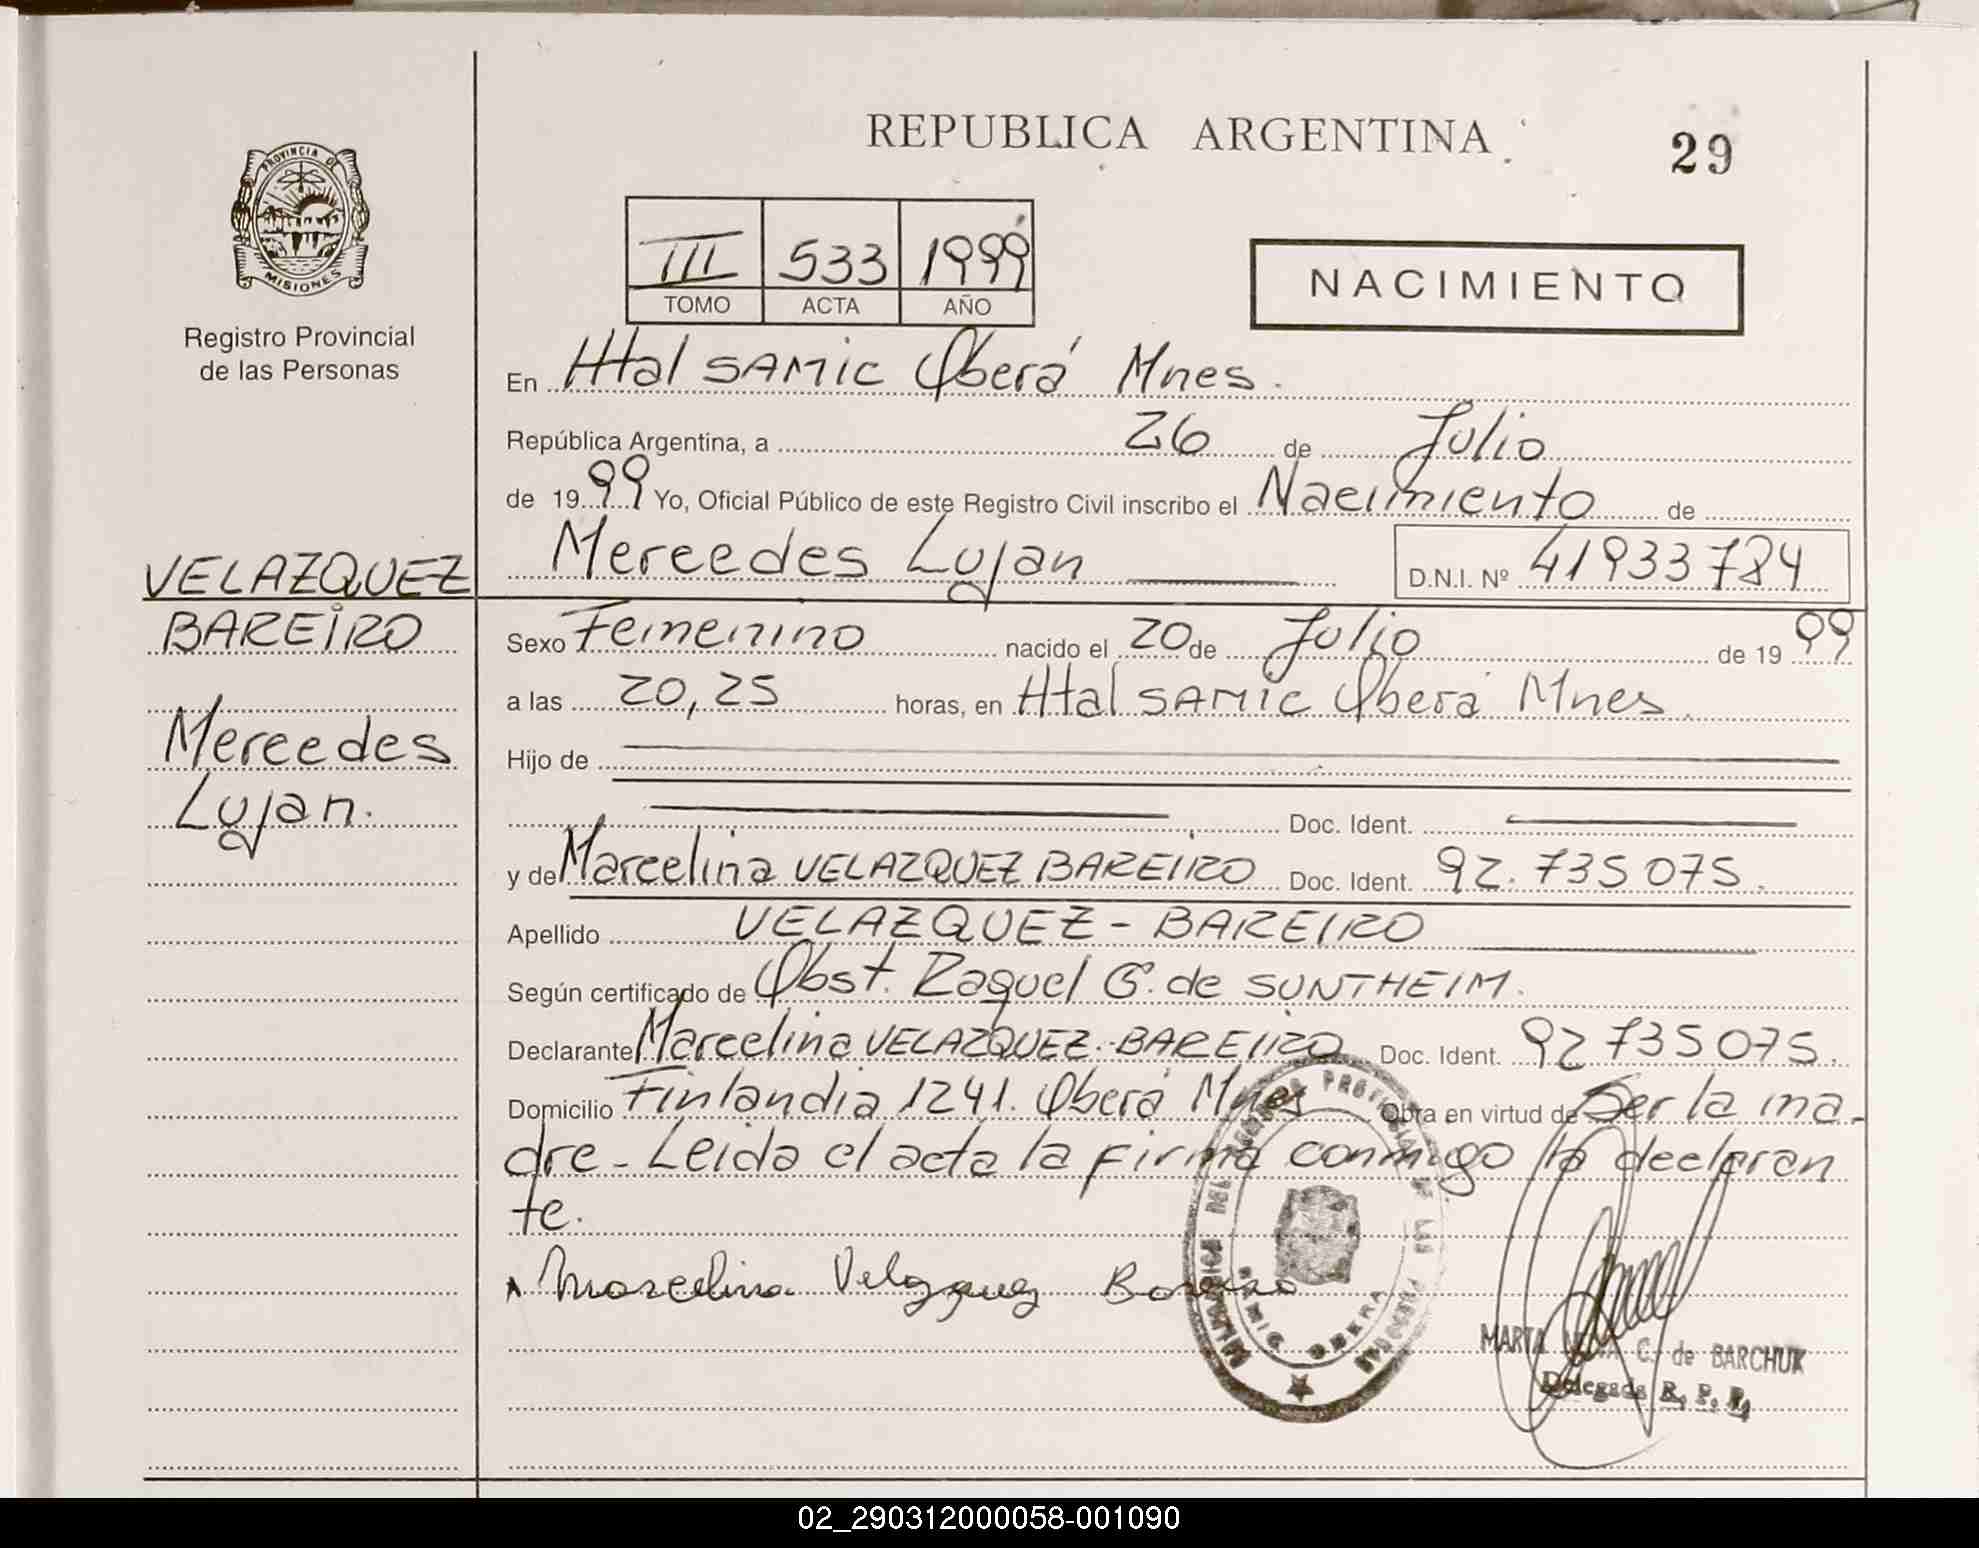 REPUBLICA ARGENTINA
29
PROVINCIA DE
MISIONES
Registro Provincial
de las Personas
III 533 1999
TOMO ACTA AÑO
NACIMIENTO
En Htal SAMIC Oberá Mnes.
República Argentina, a 26 de Julio
de 1999 Yo, Oficial Público de este Registro Civil inscribo el Nacimiento de
Mercedes Lujan D.N.I. Nº 41933784
VELAZQUEZ
BAREIRO
Mercedes
Lujan.
Sexo Femenino nacido el 20 de Julio de 1999
a las 20,25 horas, en Htal SAMIC Oberá Mnes.
Hijo de
Doc. Ident.
y de Marcelina VELAZQUEZ BAREIRO Doc. Ident. 92.735075.
Apellido VELAZQUEZ - BAREIRO
Según certificado de Obst. Raquel G. de SUNTHEIM.
Declarante Marcelina VELAZQUEZ-BAREIRO Doc. Ident. 92735075.
Domicilio Finlandia 1241. Oberá Mnes Obra en virtud de Ser la ma-
dre - Leida el acta la firma conmigo la declaran
te.
Marcelina Velazquez Bareiro
MARTA C. de BARCHUK
Delegada R. P. P.
02_290312000058-001090